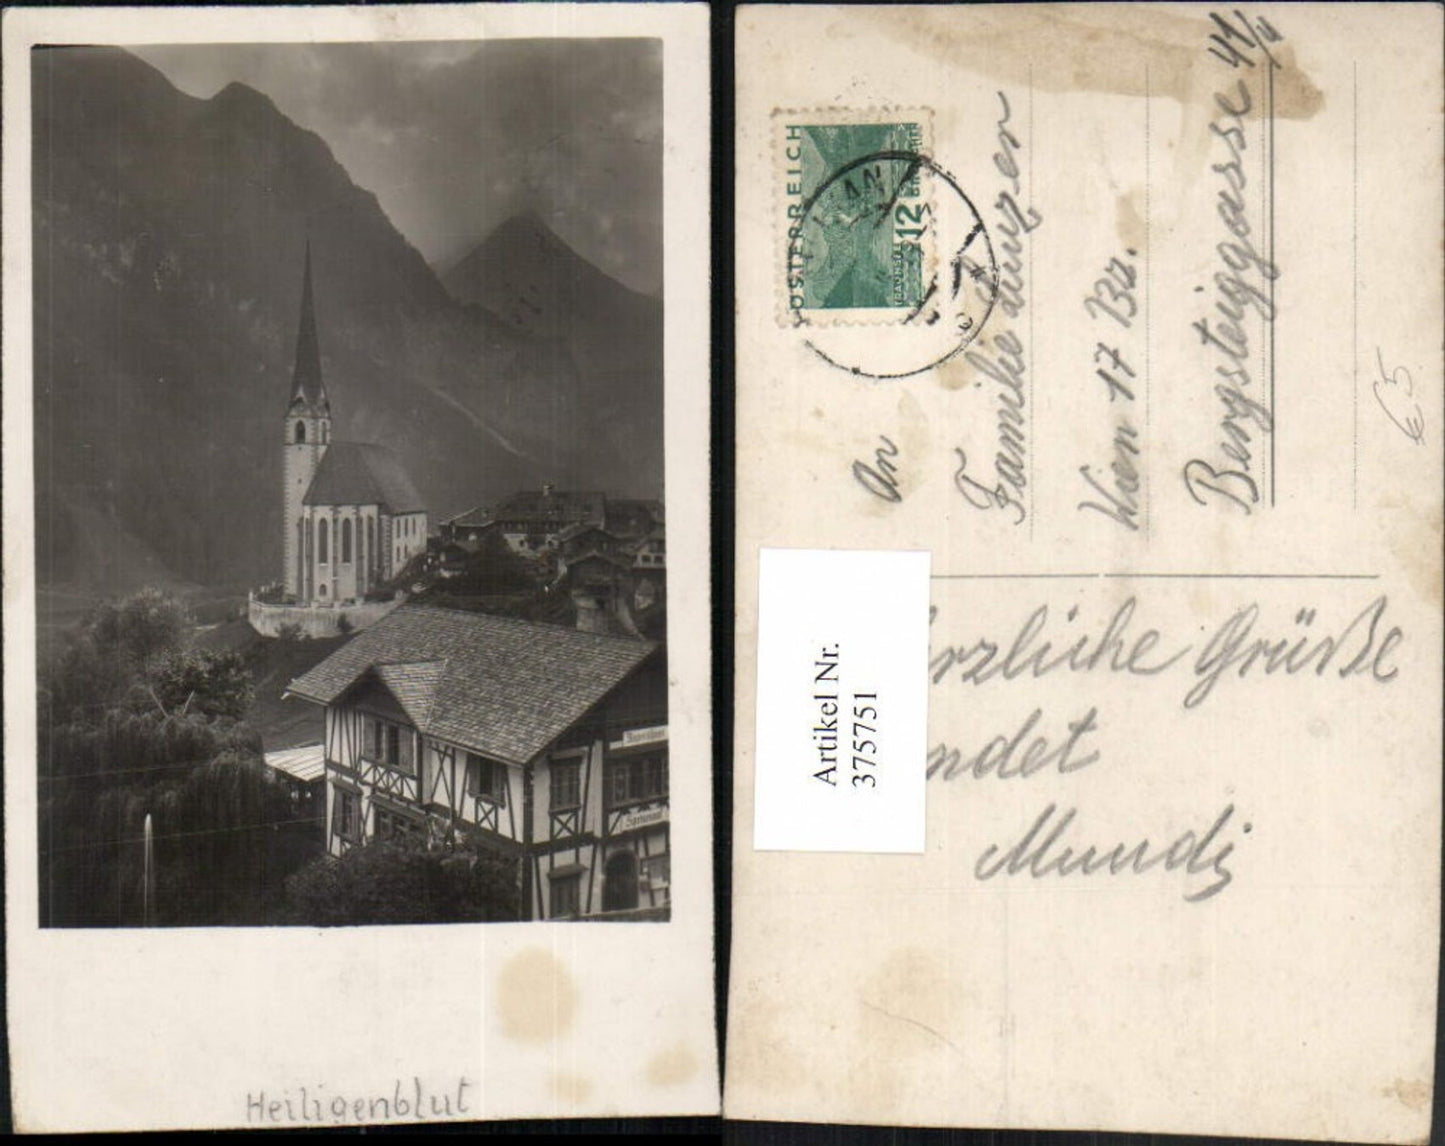 Heiligenblut
ÖSTERREICH
12
TRAUNSEE
An
Familie
Wien 17 Bez.
Bergsteiggasse 41/4
€5
Artikel Nr.
375751
rzliche Grüße
ndet
Mundi